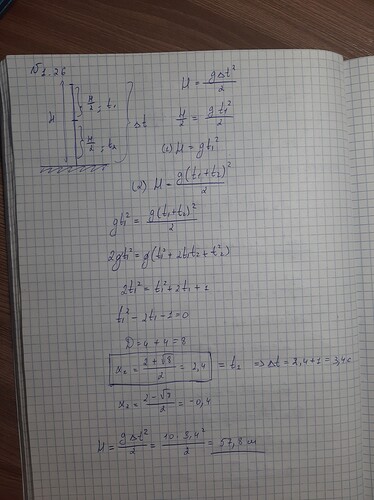 №1.26
H = gΔt²/2
H/2; t₁
H
H/2 = gt₁²/2
Δt
H/2; t₂
(1) H = gt₁²
(2) H = g(t₁+t₂)²/2
gt₁² = g(t₁+t₂)²/2
2gt₁² = g(t₁²+2t₁t₂+t₂²)
2t₁² = t₁²+2t₁+1
t₁² - 2t₁ - 1 = 0
D = 4 + 4 = 8
x₁ = (2+√8)/2 = 2,4 = t₁ => Δt = 2,4+1 = 3,4 с
x₂ = (2-√8)/2 = -0,4
H = gΔt²/2 = 10·3,4²/2 = 57,8 м